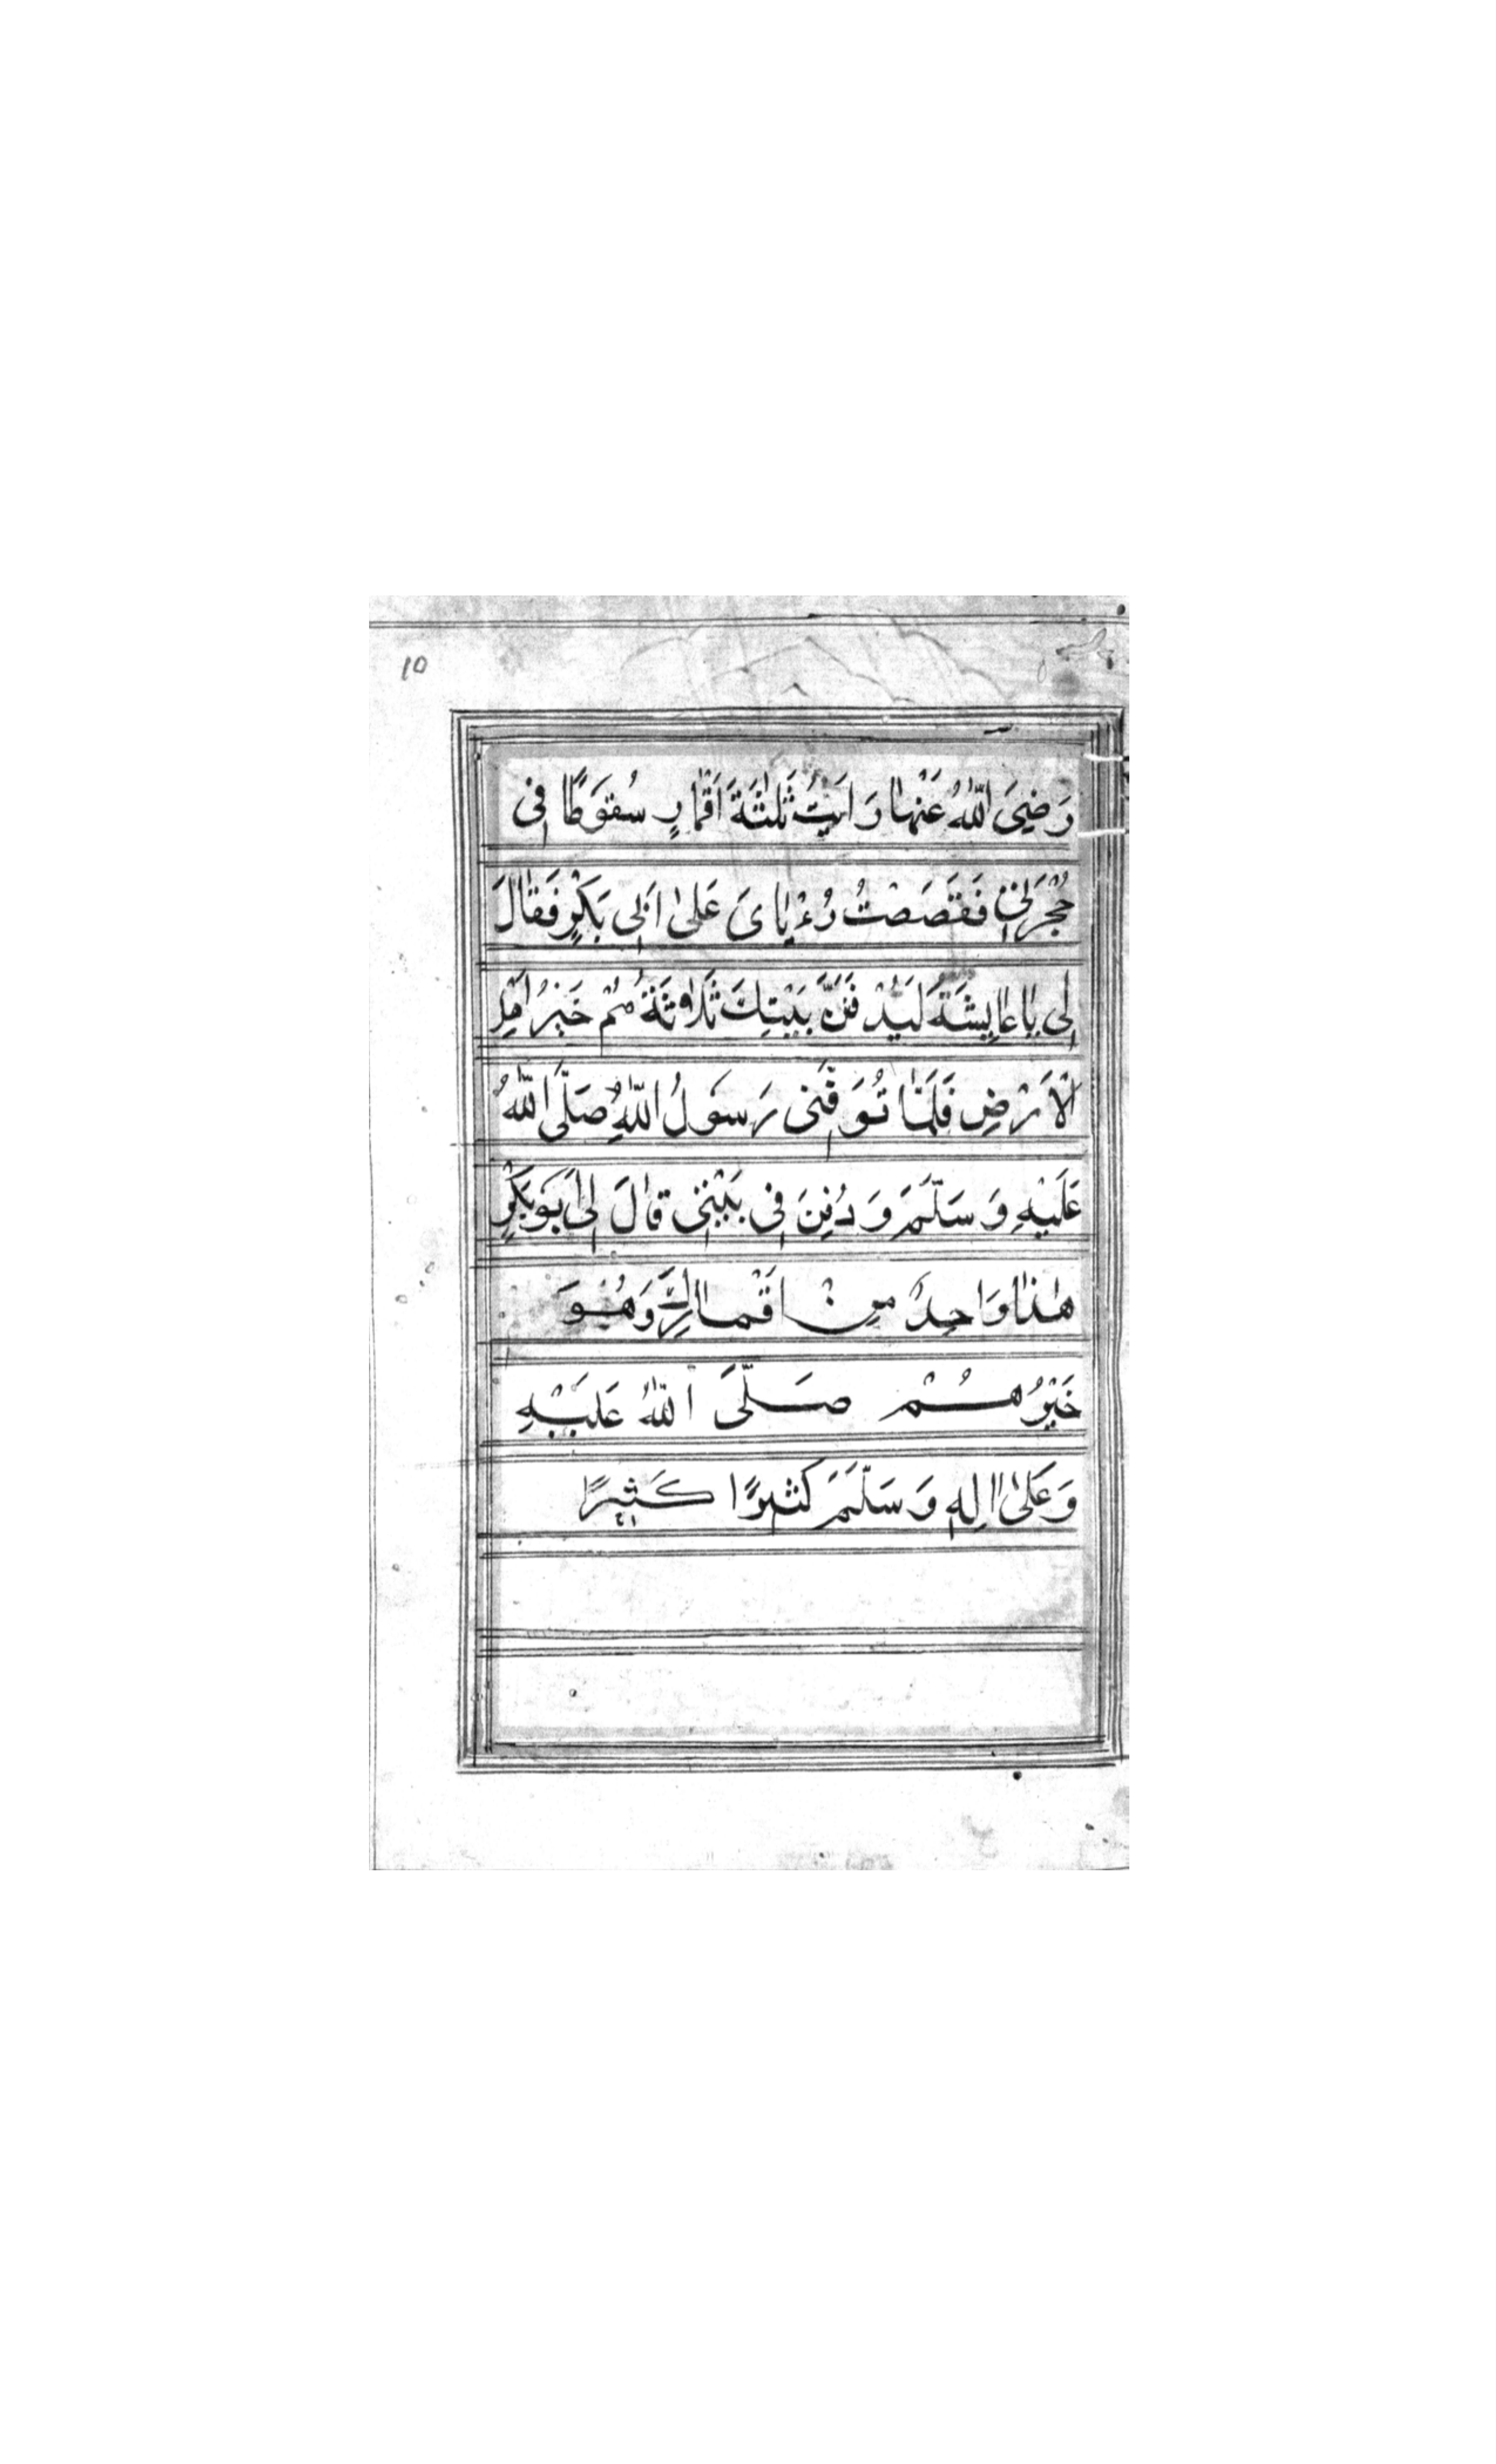 10
رَضِيَ اللّٰهُ عَنْهَا رَاَيْتُ ثَلٰثَةَ اَقْمَارٍ سُقُوطًا فِي
حُجْرَتِي فَقَصَصْتُ رُءْيَايَ عَلٰى اَبِي بَكْرٍ فَقَالَ
لِي يَا عَايِشَةُ لَيُدْفَنَنَّ بَيْتِكِ ثَلَاثَةٌ هُمْ خَيْرُ اَهْلِ
الْاَرْضِ فَلَمَّا تُوَفِّيَ رَسُولُ اللّٰهِ صَلَّى اللّٰهُ
عَلَيْهِ وَسَلَّمَ وَدُفِنَ فِي بَيْتِي قَالَ لِي اَبُو بَكْرٍ
هٰذَا وَاحِدٌ مِنْ اَقْمَارِكِ وَهُوَ
خَيْرُهُمْ صَلَّى اللّٰهُ عَلَيْهِ
وَعَلٰى اٰلِهِ وَسَلَّمَ كَثِيرًا كَثِيرًا